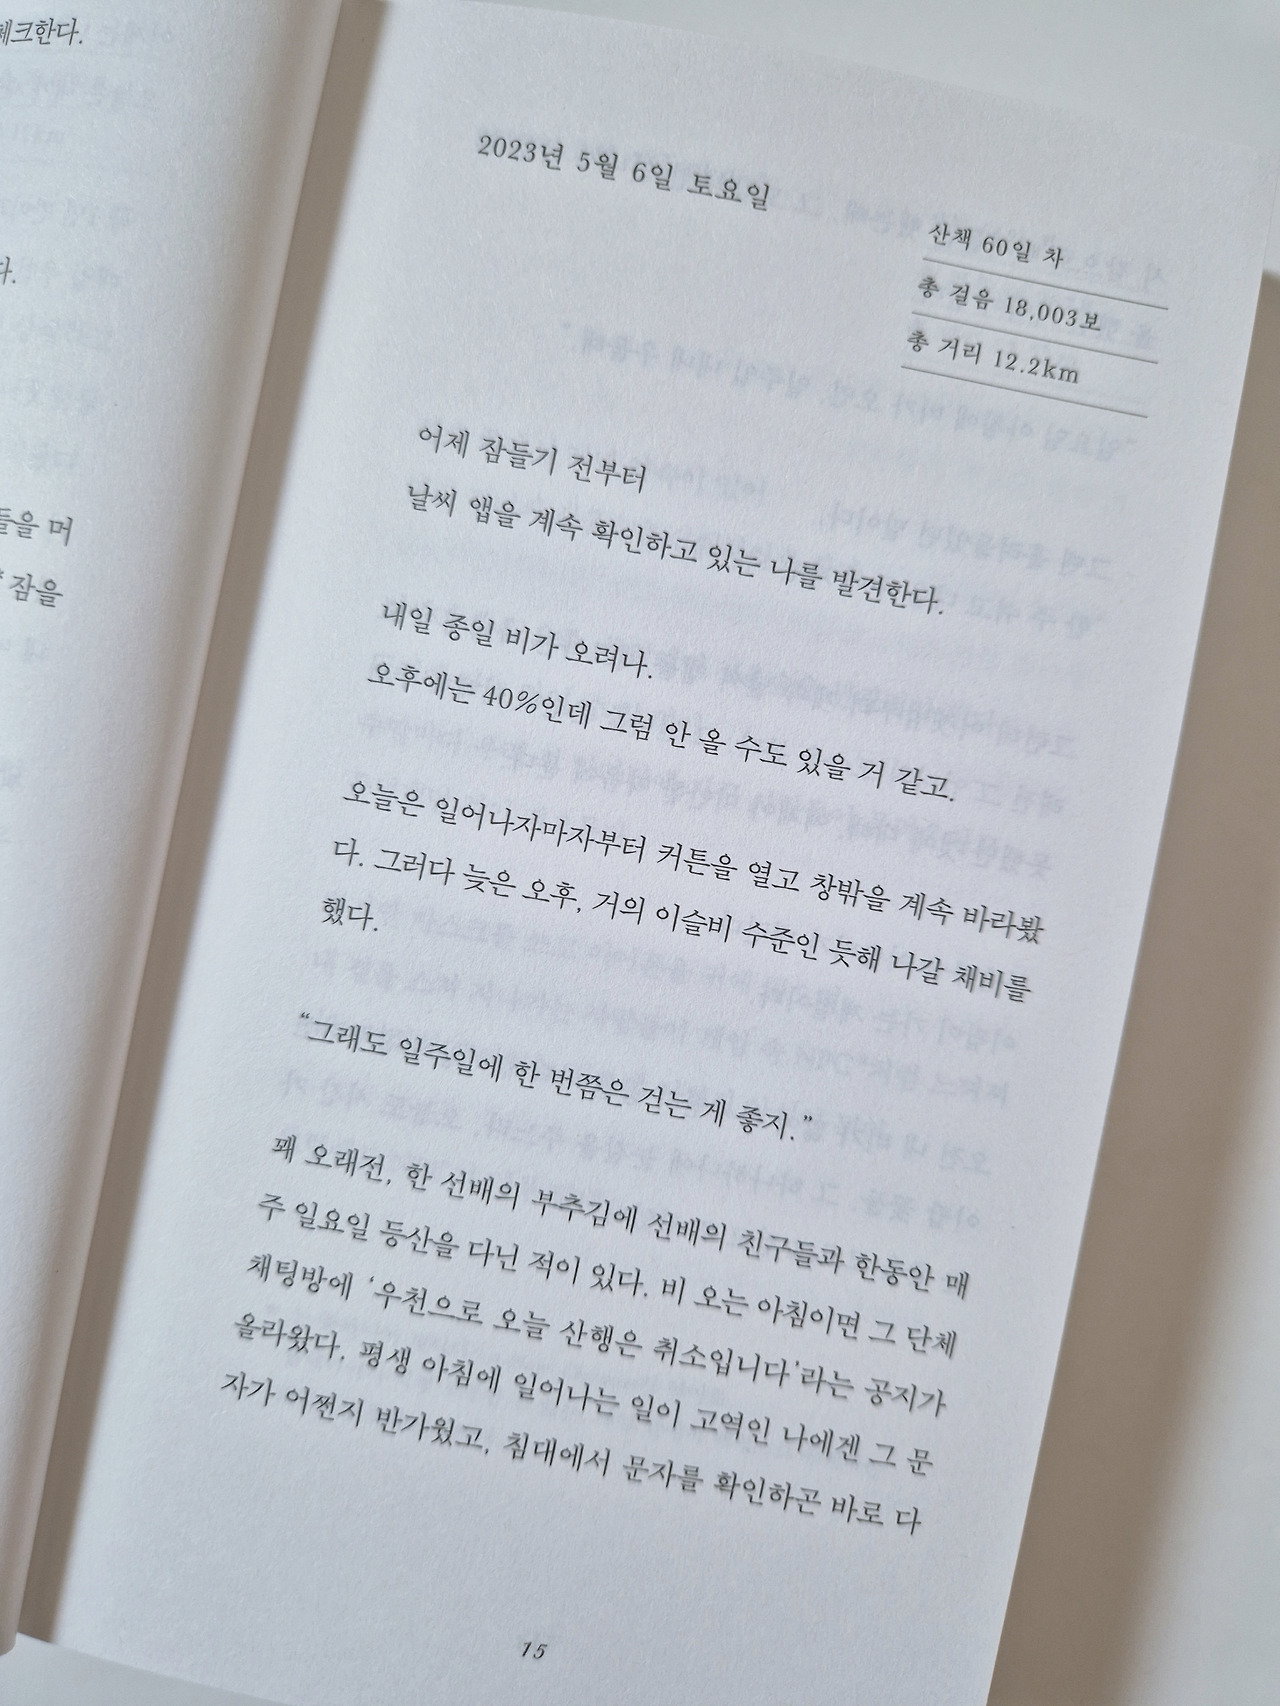 체크한다.
다.
들을 머
잠을
2023년 5월 6일 토요일
산책 60일 차
총 걸음 18,003보
총 거리 12.2km
어제 잠들기 전부터
날씨 앱을 계속 확인하고 있는 나를 발견한다.
내일 종일 비가 오려나.
오후에는 40%인데 그럼 안 올 수도 있을 거 같고.
오늘은 일어나자마자부터 커튼을 열고 창밖을 계속 바라봤
다. 그러다 늦은 오후, 거의 이슬비 수준인 듯해 나갈 채비를
했다.
“그래도 일주일에 한 번쯤은 걷는 게 좋지.”
꽤 오래전, 한 선배의 부추김에 선배의 친구들과 한동안 매
주 일요일 등산을 다닌 적이 있다. 비 오는 아침이면 그 단체
채팅방에 ‘우천으로 오늘 산행은 취소입니다’라는 공지가
올라왔다. 평생 아침에 일어나는 일이 고역인 나에겐 그 문
자가 어쩐지 반가웠고, 침대에서 문자를 확인하곤 바로 다
15